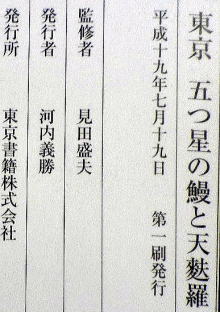 東京 五つ星の鰻と天麩羅
平成十九年七月十九日 第一刷発行
監修者 見田盛夫
発行者 河内義勝
発行所 東京書籍株式会社